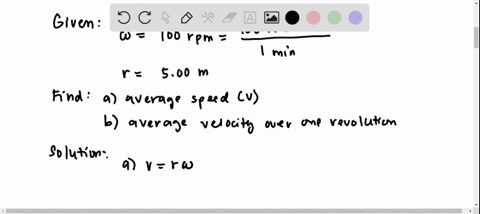 Given:
ω = 100 rpm =
1 min
r = 5.00 m
Find: a) average speed (v)
b) average velocity over one revolution
Solution:
a) v = rω